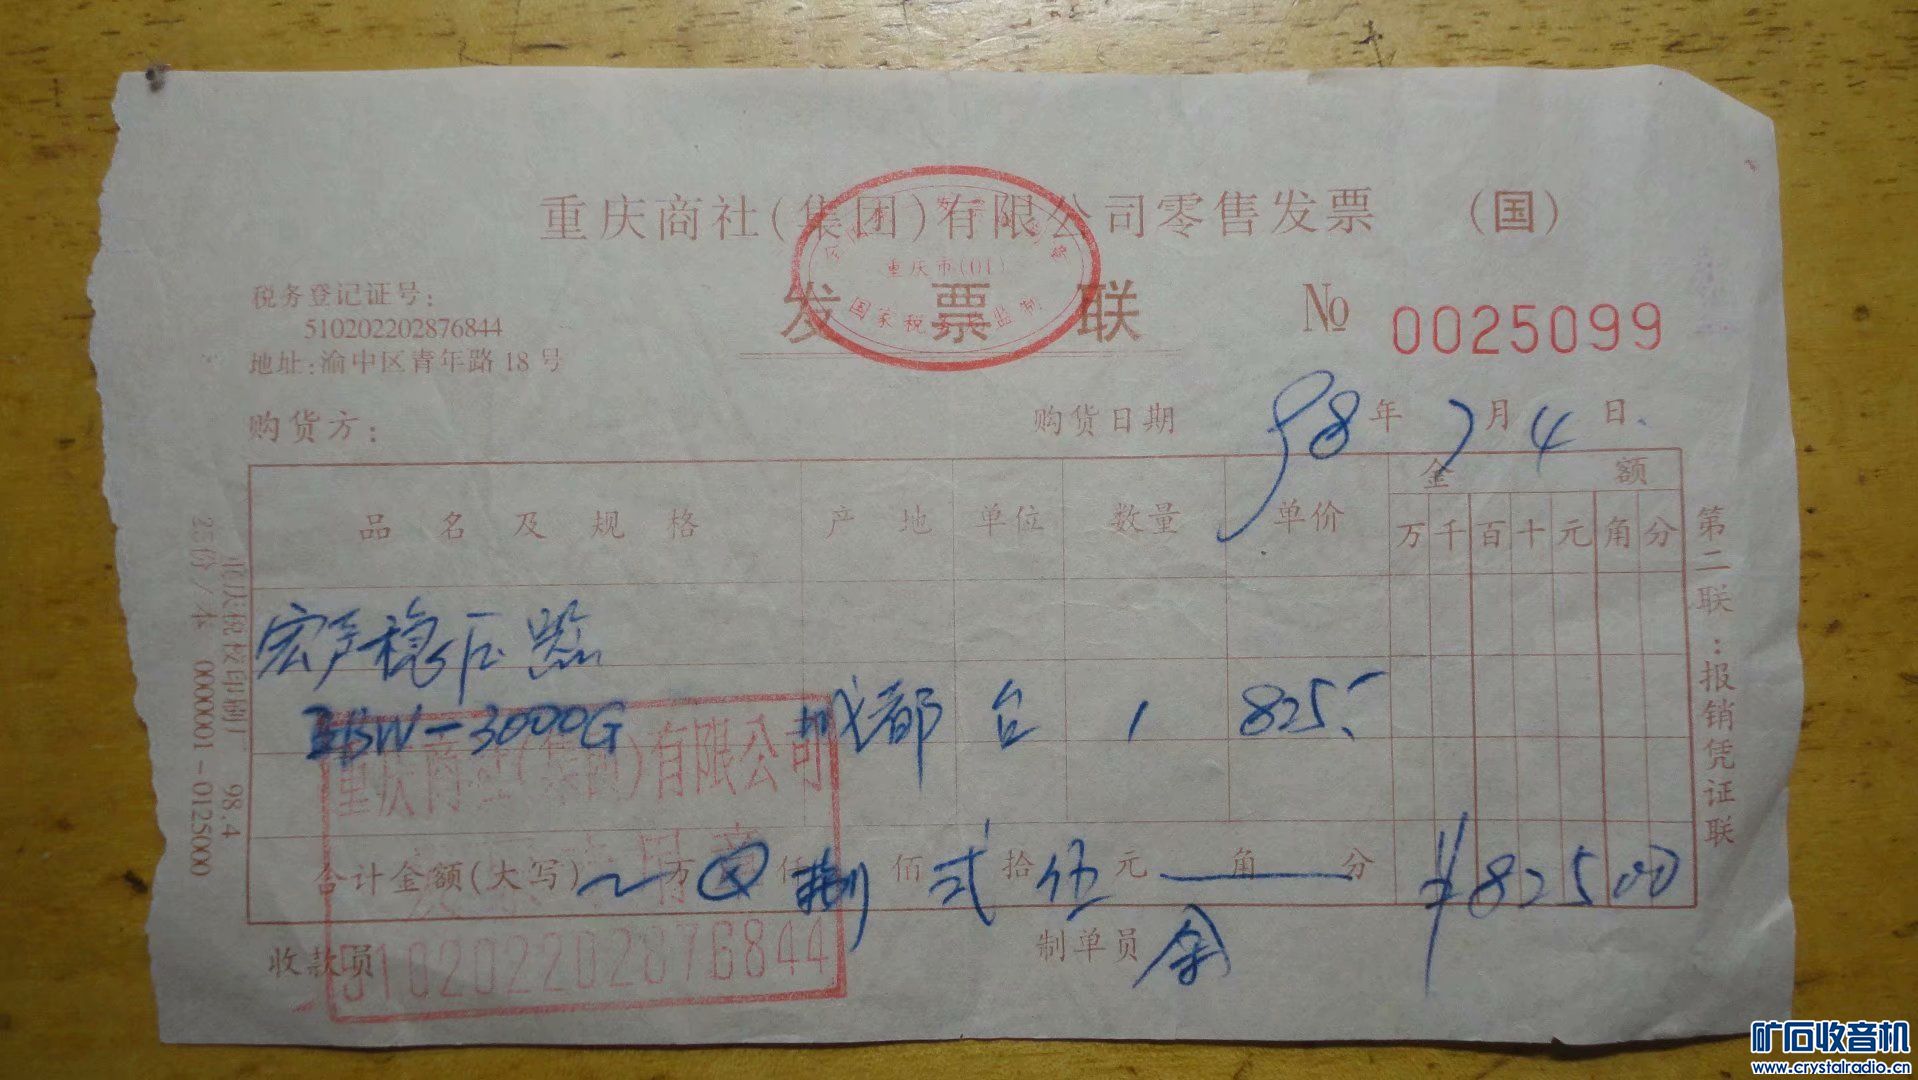 重庆商社(集团)有限公司零售发票 (国)
重庆市(01)
国家税务局监制
发票联
№ 0025099
税务登记证号:
510202202876844
地址:渝中区青年路18号
购货方:
购货日期 98年7月4日
品名及规格 产地 单位 数量 单价 金额
万 千 百 十 元 角 分
宏声稳压器
-3000G 成都 台 1 825.-
合计金额(大写) 万 仟 捌佰弍拾伍元 角 分 ¥82500
收款员
制单员 余
重庆商社(集团)有限公司
510202202876844
第二联:报销凭证联
印制厂 98.4
25份/本 0000001-0125000
矿石收音机
www.crystalradio.cn